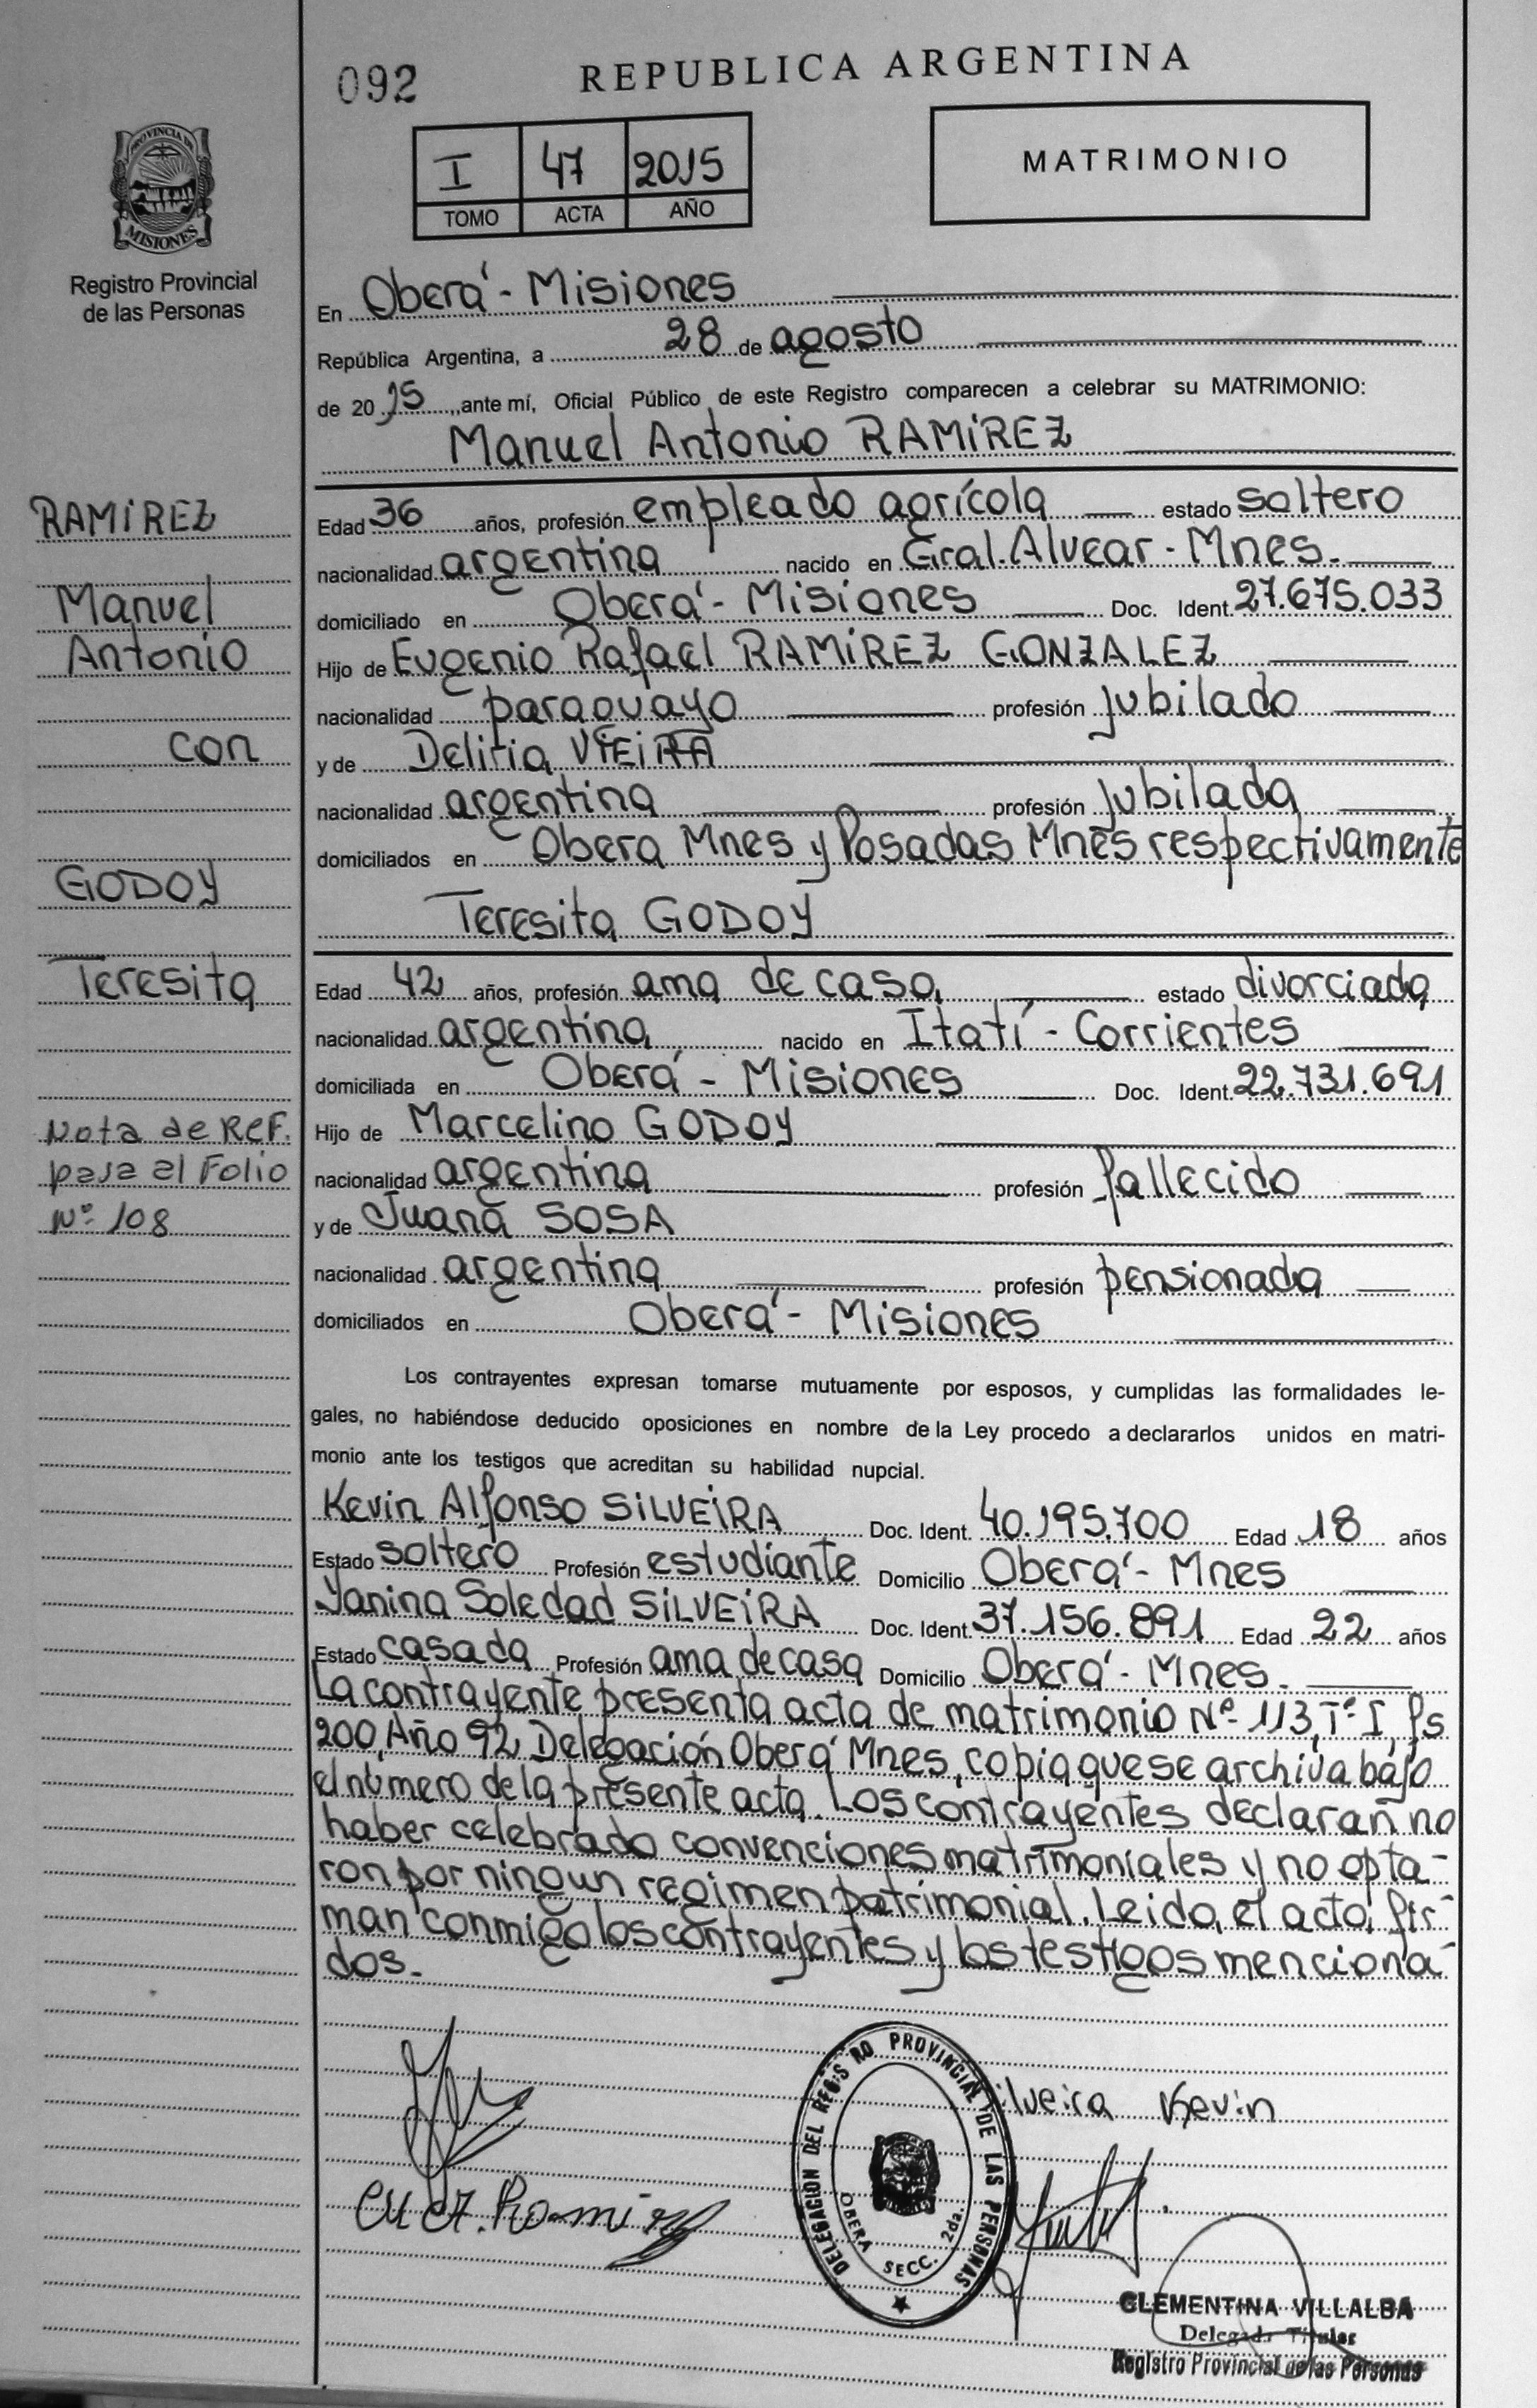 092
REPUBLICA ARGENTINA
I 47 2015
TOMO ACTA AÑO
MATRIMONIO
PROVINCIA DE
MISIONES
Registro Provincial
de las Personas
En Oberá - Misiones
República Argentina, a 28 de agosto
de 2015, ante mí, Oficial Público de este Registro comparecen a celebrar su MATRIMONIO:
Manuel Antonio RAMIREZ
Edad 36 años, profesión empleado agrícola estado soltero
nacionalidad argentina nacido en Gral. Alvear - Mnes.
domiciliado en Oberá - Misiones Doc. Ident. 27.675.033
Hijo de Eugenio Rafael RAMIREZ GONZALEZ
nacionalidad paraguayo profesión jubilado
y de Deliria VIEIRA
nacionalidad argentina profesión jubilada
domiciliados en Obera Mnes y Posadas Mnes respectivamente
Teresita GODOY
Edad 42 años, profesión ama de casa estado divorciada
nacionalidad argentina nacido en Itatí - Corrientes
domiciliada en Oberá - Misiones Doc. Ident. 22.731.691
Hijo de Marcelino GODOY
nacionalidad argentina profesión fallecido
y de Juana SOSA
nacionalidad argentina profesión pensionada
domiciliados en Oberá - Misiones
Los contrayentes expresan tomarse mutuamente por esposos, y cumplidas las formalidades le-
gales, no habiéndose deducido oposiciones en nombre de la Ley procedo a declararlos unidos en matri-
monio ante los testigos que acreditan su habilidad nupcial.
Kevin Alfonso SILVEIRA Doc. Ident. 40.195.700 Edad 18 años
Estado soltero Profesión estudiante Domicilio Oberá - Mnes
Yanina Soledad SILVEIRA Doc. Ident. 37.156.891 Edad 22 años
Estado casada Profesión ama de casa Domicilio Oberá - Mnes.
La contrayente presenta acta de matrimonio Nº 113, Tº I, fs
200, Año 92, Delegación Oberá Mnes, copia que se archiva bajo
el número de la presente acta. Los contrayentes declaran no
haber celebrado convenciones matrimoniales y no opta-
ron por ningun regimen patrimonial. Leida el acta, fir-
man conmigo los contrayentes y los testigos menciona-
dos.
RAMIREZ
Manuel
Antonio
con
GODOY
Teresita
Nota de REF.
pasa al Folio
Nº 108
ilveira Kevin
DELEGACION DEL REGISTRO PROVINCIAL DE LAS PERSONAS
OBERA SECC. 2da.
CLEMENTINA VILLALBA
Delegada Titular
Registro Provincial de las Personas